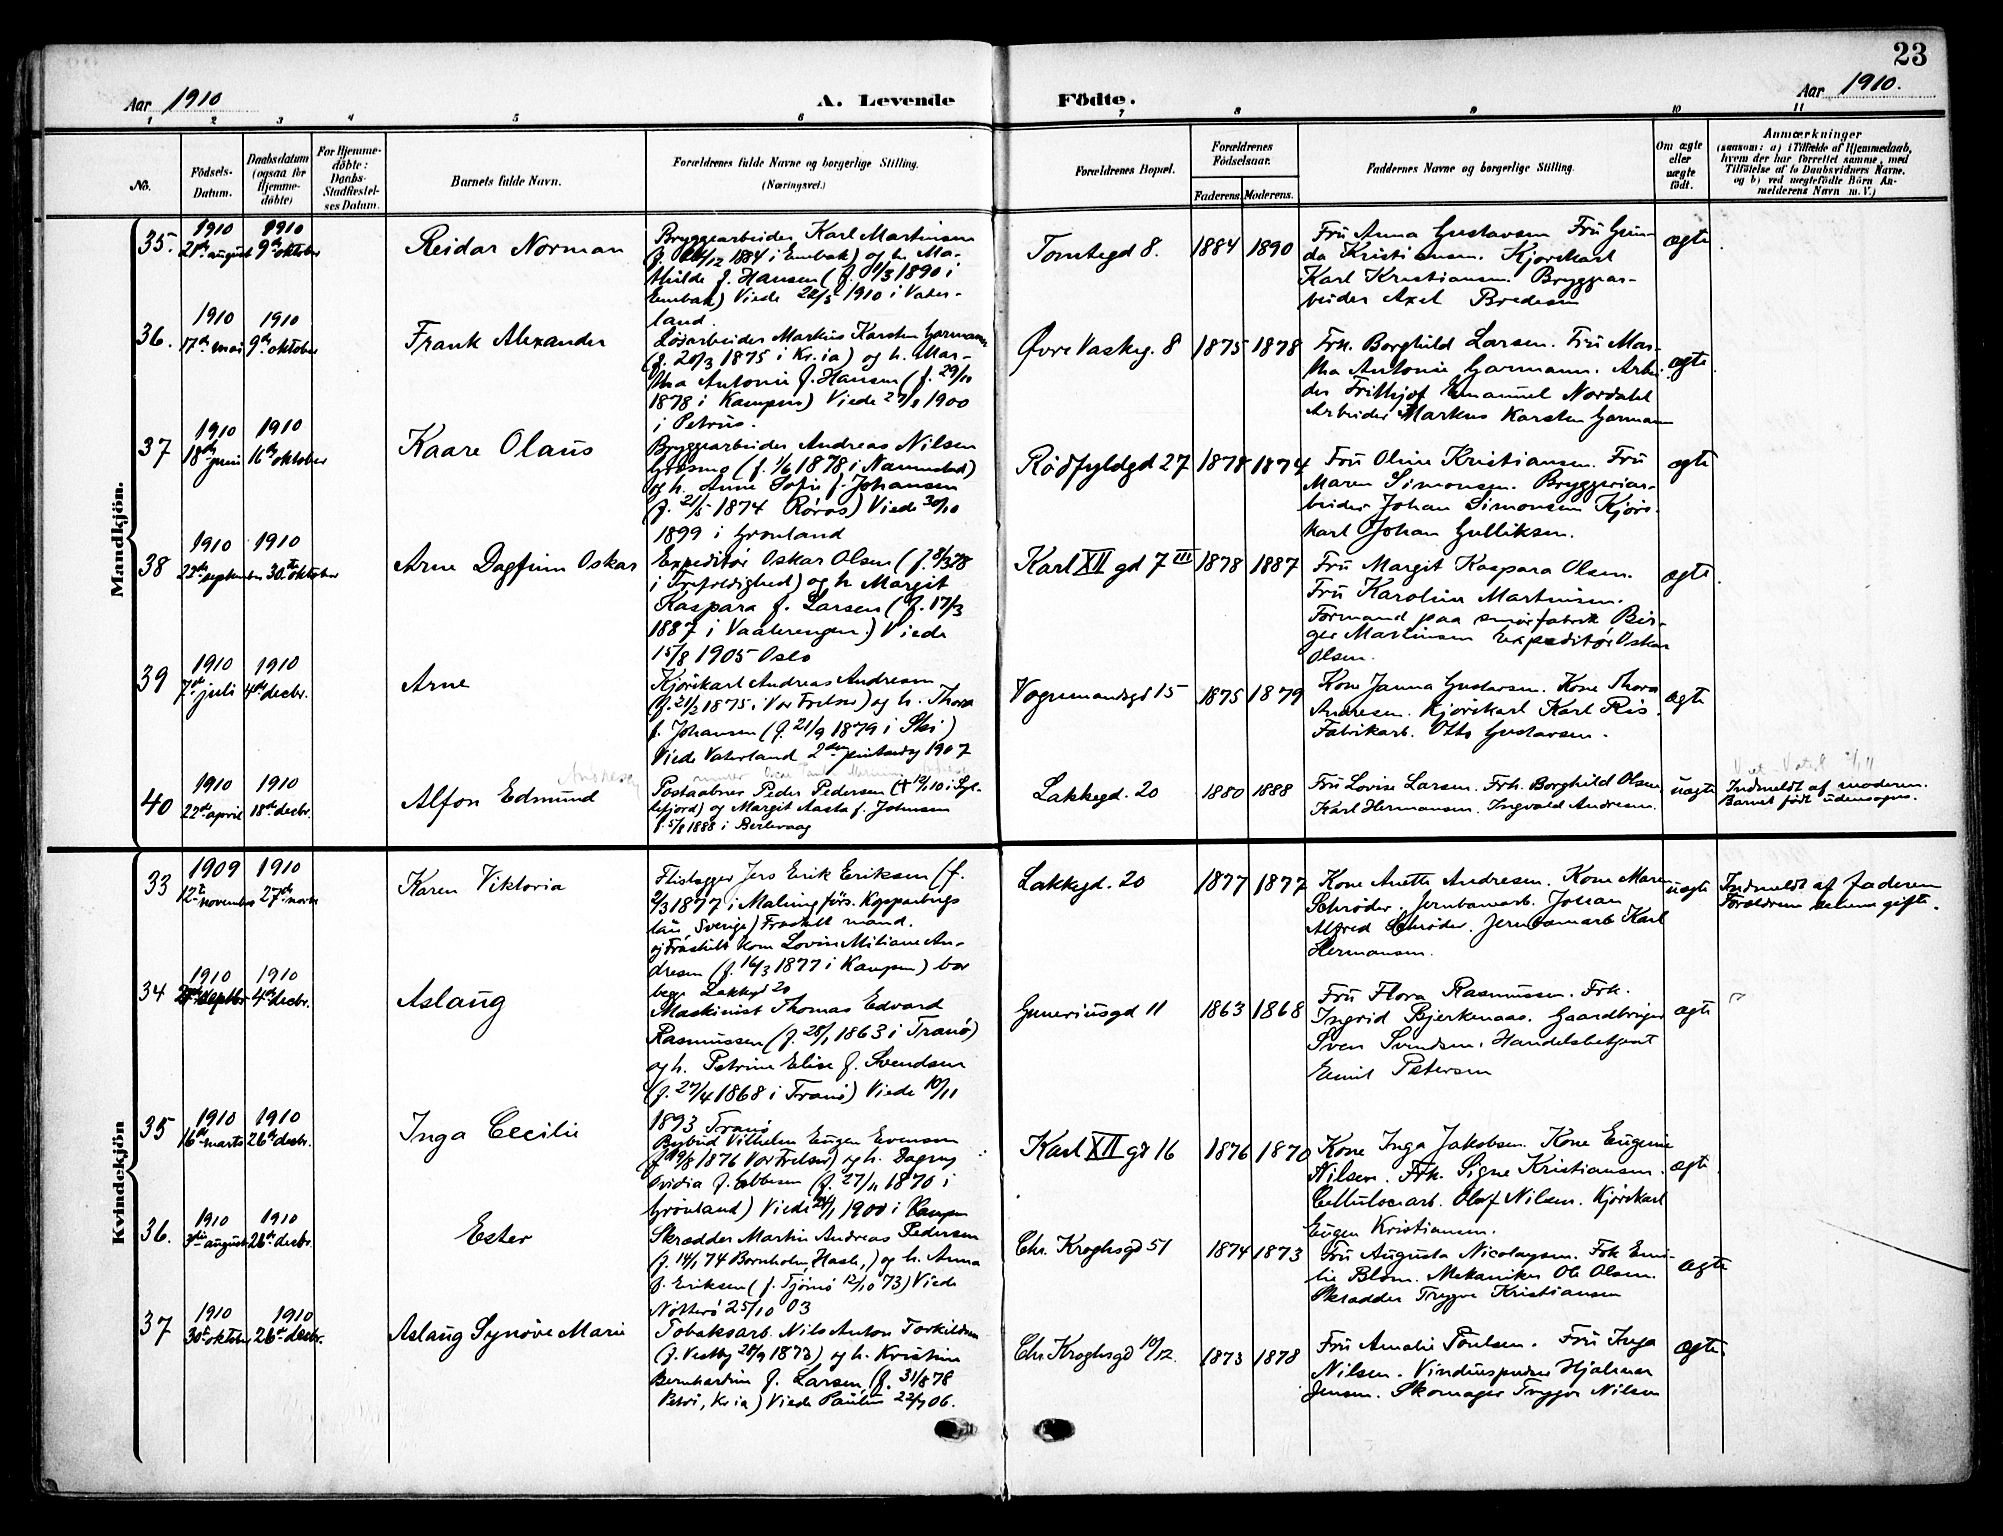 23
Aar 1910
A. Levende
Födte.
Aar 1910.
1 2 3 4 5 6 7 8 9 10 11
No.
Födsels-
Datum.
Daabsdatum
(ogsaa for
Hjemme-
döbte)
For Hjemme-
döbte:
Daabs-
Stadfæstel-
ses Datum.
Barnets fulde Navn.
Forældrenes fulde Navne og borgerlige Stilling.
(Næringsvei.)
Forældrenes Bopæl.
Forældrenes
Födselsaar.
Faderens.
Moderens.
Faddernes Navne og borgerlige Stilling.
Om ægte
eller
uægte
födt.
Anmærkninger
(saasom: a) i Tilfælde af Hjemmedaab,
hvem der har forrettet samme, med
Tilföielse af to Daabsvidners Navne,
og b) ved uægtefödte Börn An-
melderens Navn m. V.)
Mandkjön.
35.
1910
21de august
1910
9de oktober
Reidar Norman
Bryggearbeider Karl Martinsen
1884 i Enebak) og h. Ma-
thilde f. Hansen (f. 1/3 1890 i
Enebak) Viede 22/5 1910 i Vater-
land.
Tomtegd 8.
1884
1890
Fru Anna Gustavsen Fru Gun-
da Kristiansen. Kjørekarl
Karl Kristiansen. Bryggear-
beider Axel Bredesen
ægte
36.
1910
17de mai
1910
9de oktober
Frank Alexander
Løsarbeider Markus Karsten Garmann
(f. 20/3 1875 i Kr.ia) og h. Mar-
tha Antonie f. Hansen (f. 29/10
1878 i Kampen) Viede 27/8 1900
i Petrus.
Øvre Vaskeg. 8
1875
1878
Frk. Borghild Larsen. Fru Mar-
tha Antonie Garmann. Arbei-
der Frithjof Emanuel Nordahl
Arbeider Markus Karsten Garmann
ægte
37
1910
18de juni
1910
16de oktober
Kaare Olaus
Bryggearbeider Andreas Nilsen
Græsmo (f. 1/6 1878 i Nannestad)
og h. Anne Sofie f. Johansen
(f. 21/5 1874 Røros) Viede 30/10
1899 i Grønland
Rødfyldgd 27
1878
1874
Fru Oline Kristiansen. Fru
Maren Simonsen. Bryggeriar-
beider Johan Simonsen Kjøre-
karl Johan Gulliksen.
ægte
38
1910
22de september
1910
30te oktober
Arne Dagfinn Oskar
Expeditør Oskar Olsen (f. 8/3 78
i Trefoldighed) og h Margit
Kaspara f. Larsen (f. 17/3
1887 i Vaalerengen.) Viede
15/8 1905 Oslo
Karl XII gd 7 III
1878
1887
Fru Margit Kaspara Olsen.
Fru Karoline Martinsen.
Formand paa smørfabrik Bir-
ger Martinsen Expeditør Oskar
Olsen.
ægte
39
1910
7de juli
1910
4de decbr.
Arne
Kjørekarl Andreas Andresen
(f. 21/2 1875 i Vor Frelser) og h. Thora
f. Johansen (f. 21/9 1879 i Ski)
Viede Vaterland 2den pintsedag 1907
Vognmandsgd 15
1875
1879
Kone Janna Gustavsen. Kone Thora
Andresen. Kjørekarl Karl Ris.
Fabrikarb. Otto Gustavsen.
ægte
40
1910
22de april
1910
18de decbr.
Alfon Edmund
Postaabner Peder Pedersen (+ 12/10 i Syl-
tefjord) og Margit Aasta f. Johnsen
f. 5/8 1888 i Berlevaag
Lakkegd. 20
1880
1888
Fru Lovise Larsen. Frk. Borghild Olsen
Karl Hermansen. Ingvald Andresen.
uægte
Indmeldt af moderen.
Barnet født udensogns.
Kvindekjön
33
1909
12te november
1910
27de novbr
Karen Viktoria
Flislægger Jers Erik Eriksen (f.
2/3 1877 i Malung förs. Kopparbergs
län Sverige) Fraskilt mand.
og Fraskilt kone Lovise Miliane An-
dresen (f. 16/3 1877 i Kampen) bor
begge Lakkegd 20
Lakkegd. 20
1877
1877
Kone Anette Andresen. Kone Maren
Schrøder. Jernbanearb. Johan
Alfred Schrøder. Jernbanearb Karl
Hermansen.
uægte
Indmeldt af faderen
Forældrene senere gifte.
34
1910
septbr
1910
4de decbr.
Aslaug
Maskinist Thomas Edvard
Rasmussen (f. 28/1 1863 i Tranö)
og h. Petrine Elise f. Svendsen
(f. 27/4 1868 i Tranö) Viede 10/11
1893 Tranö
Gunerius gd 11
1863
1868
Fru Flora Rasmussen. Frk.
Ingrid Bjerkenaas. Gaardbruger
Sven Svendsen. Handelsbetjent
Emil Petersen
ægte
35
1910
16de marts
1910
26de decbr.
Inga Cecilie
Bybud Vilhelm Eugen Evensen
1876 Vor Frelser) og h. Dagny
Ovidia f. Ebbesen (f. 27/11 1870 i
Grönland) Viede 1900 i Kampen
Karl XII gd 16
1876
1870
Kone Inga Jakobsen. Kone Eugenie
Nilsen. Frk. Signe Kristiansen.
Cellulosearb. Olaf Nilsen. Kjørekarl
Eugen Kristiansen.
ægte
36.
1910
3die august
1910
26de decbr.
Ester
Skrædder Martin Andreas Pedersen
(f. 14/1 74 Bornholm, Hasle,) og h. Anna
f. Eriksen (f. Tjömö 12/10 73) Viede
Nötterö 25/10 03
Chr. Kroghsgd 51
1874
1873
Fru Augusta Nicolaysen. Frk Emi-
lie Blom. Mekaniker Ole Olsen.
Skrædder Trygve Kristiansen
ægte
37
1910
30te oktober
1910
26de decbr.
Aslaug Synøve Marie
Tobaksarb. Nils Anton Torkildsen
(f. Vestby 28/9 1873) og h. Kristine
Bernhardine f. Larsen (f. 31/8 78
Petri, Kr ia) Viede Paulus 22/7 06.
Chr. Kroghsgd 10/12.
1873
1878
Fru Amalie Poulsen. Fru Inga
Nilsen. Vinduspudser Hjalmar
Jensen. Skomager Trygve Nilsen
ægte